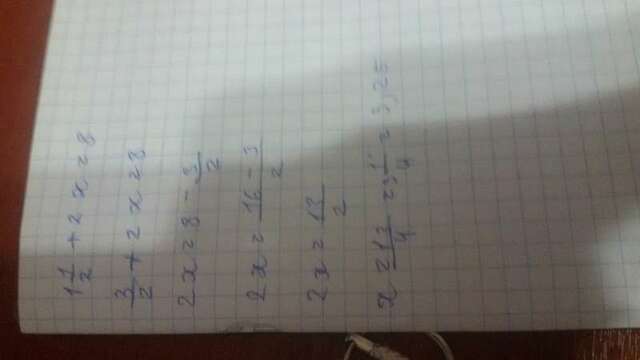 1 1/2 + 2x = 8
3/2 + 2x = 8
2x = 8 - 3/2
2x = 16 - 3/2
2x = 13/2
x = 13/4 = 3 1/4 = 3,25